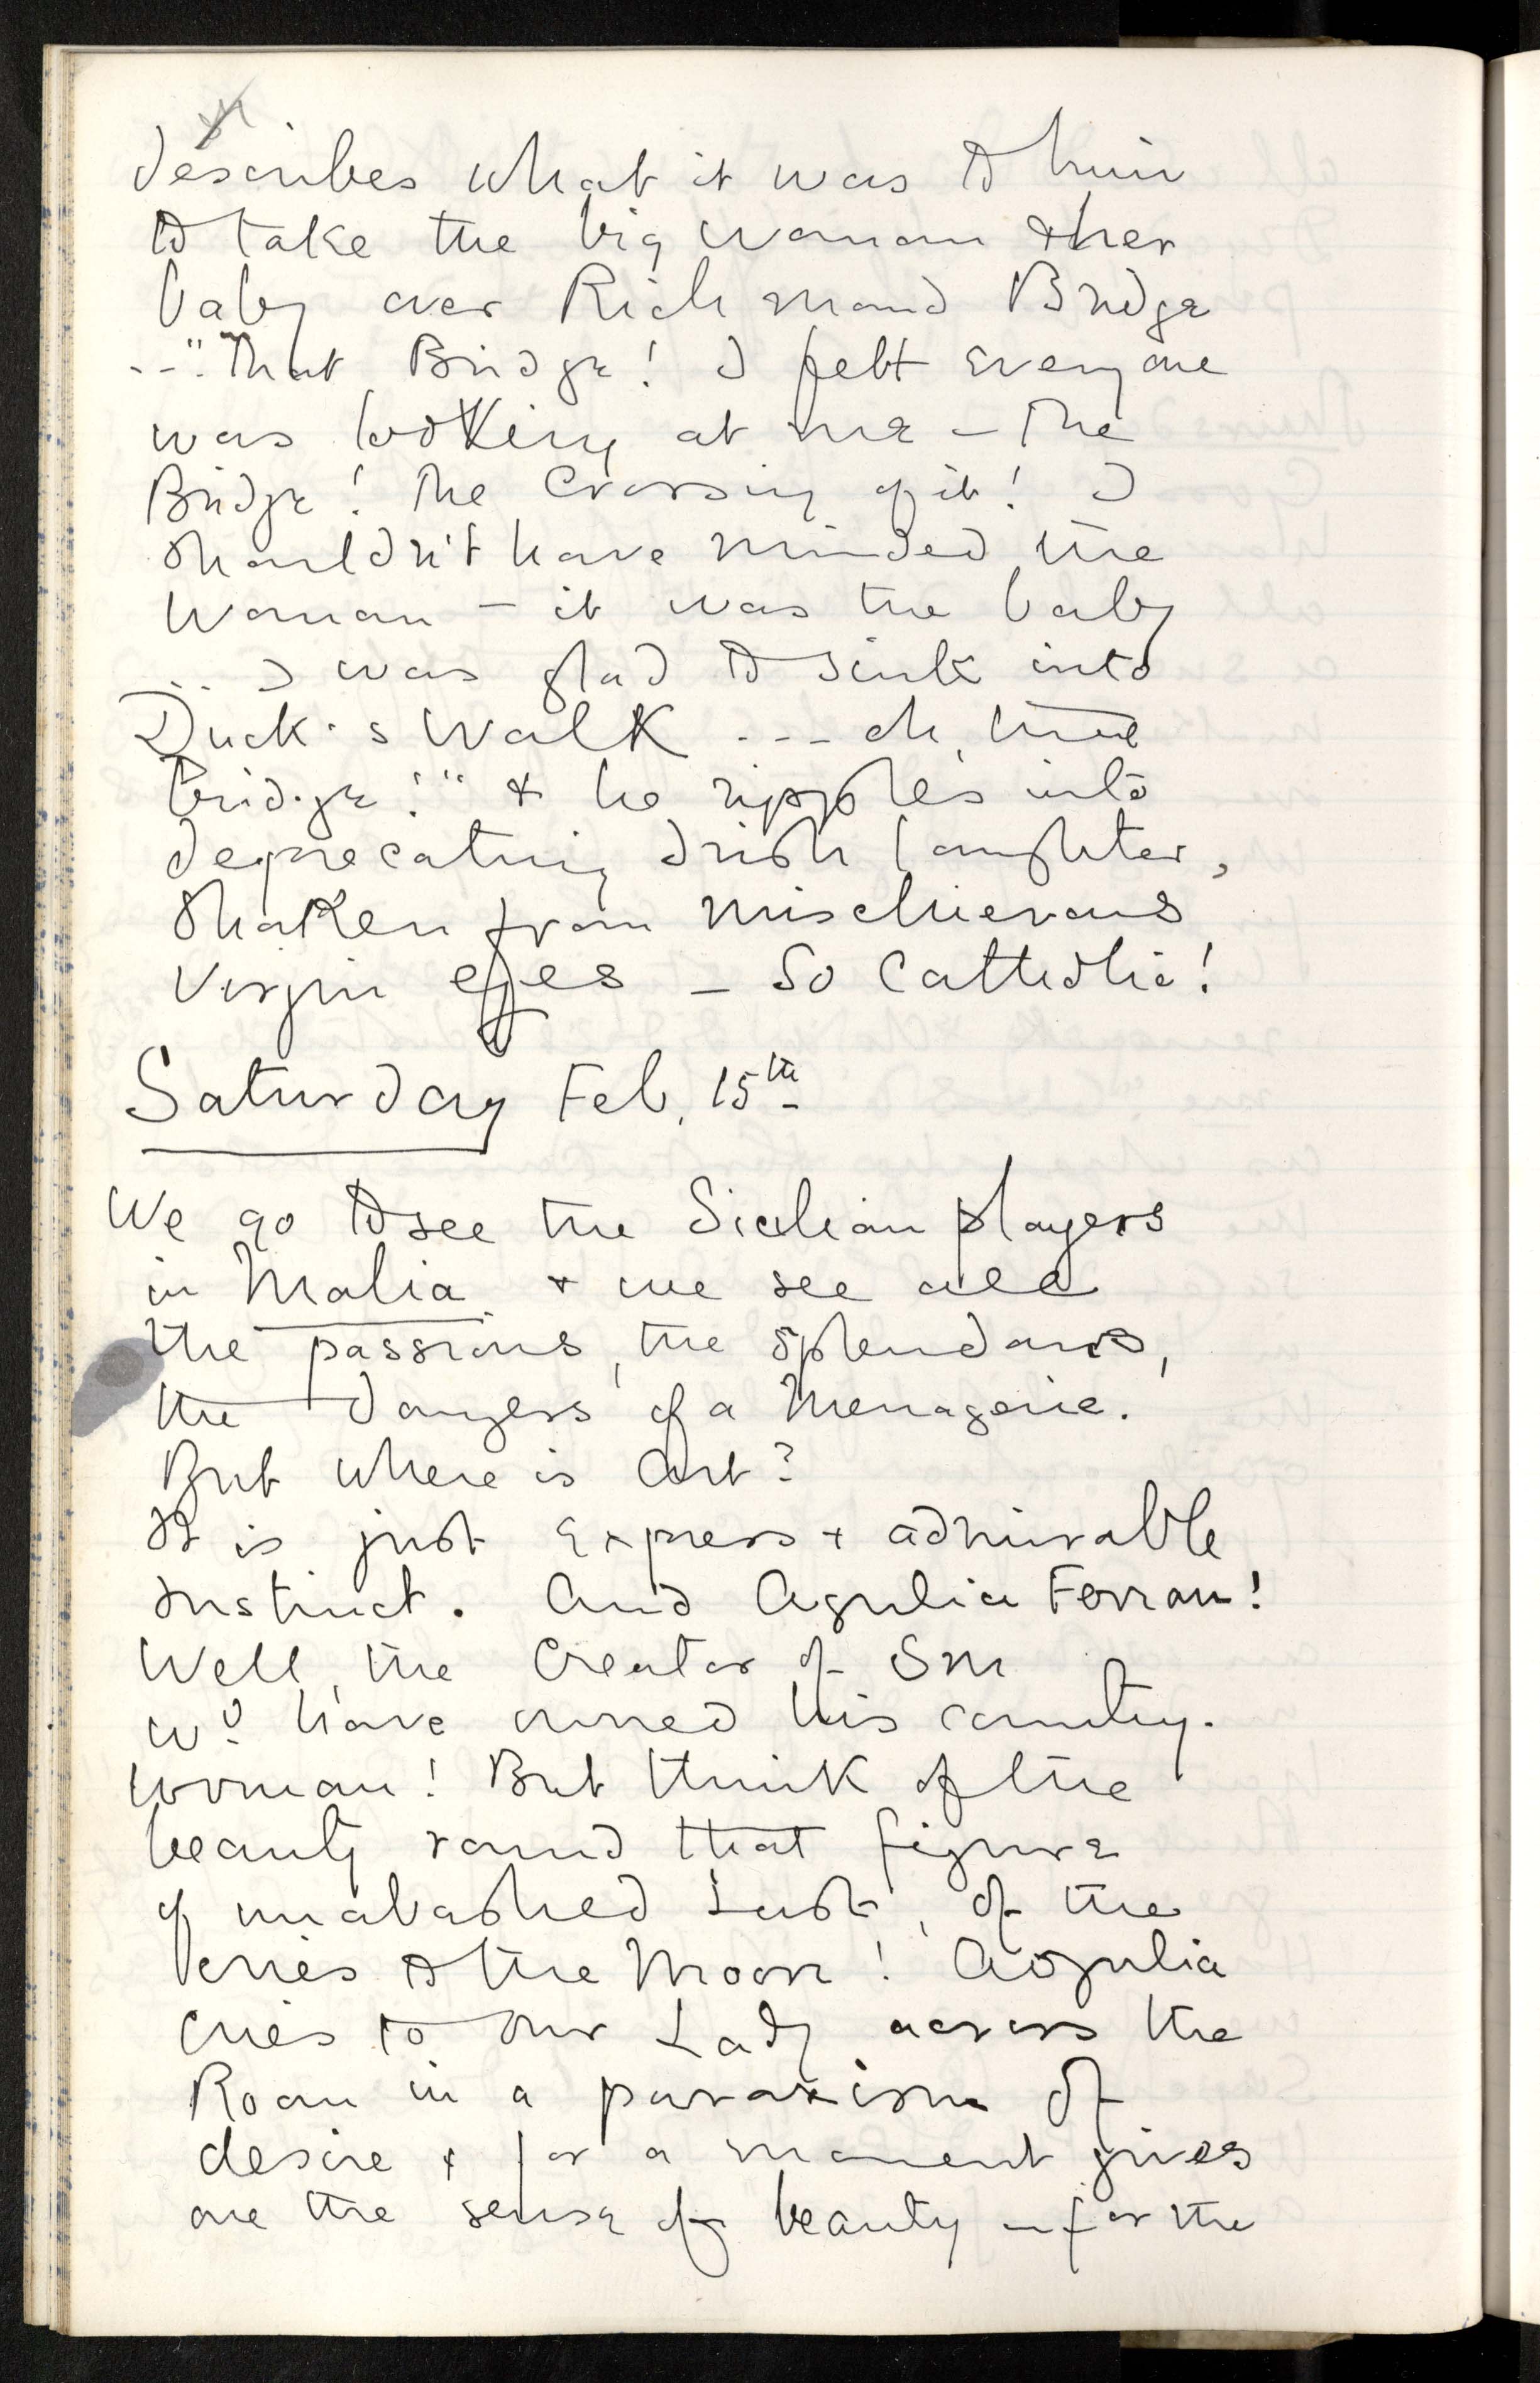 describes what it was to him
to take the big woman & her
baby over Richmond Bridge
--"That Bridge! I felt everyone
was looking at me – The
Bridge! The Crossing of it! I
shouldn't have minded the
woman – it was the baby
.. I was glad to sink into
Duck's Walk --- oh, that
bridge!" & he ripples into
deprecating Irish laughter,
shaken from mischievous
Virgin eyes – So Catholic!
Saturday Feb. 15th
We go to see the Sicilian players
in Malia & we see all
the passions, the splendours,
the dangers of a Menagerie.
But where is Art?
It is just express & admirable
Instinct. And Agulia Ferrau!
Well, the Creator of Sm
wd have owned his country-
woman! But think of the
beauty round that figure
of unabashed Lust, of the
cries to the Moon! Aogulia
cries to Our Lady across the
Room in a paroxism of
desire & for a moment gives
one the sense of beauty – for the